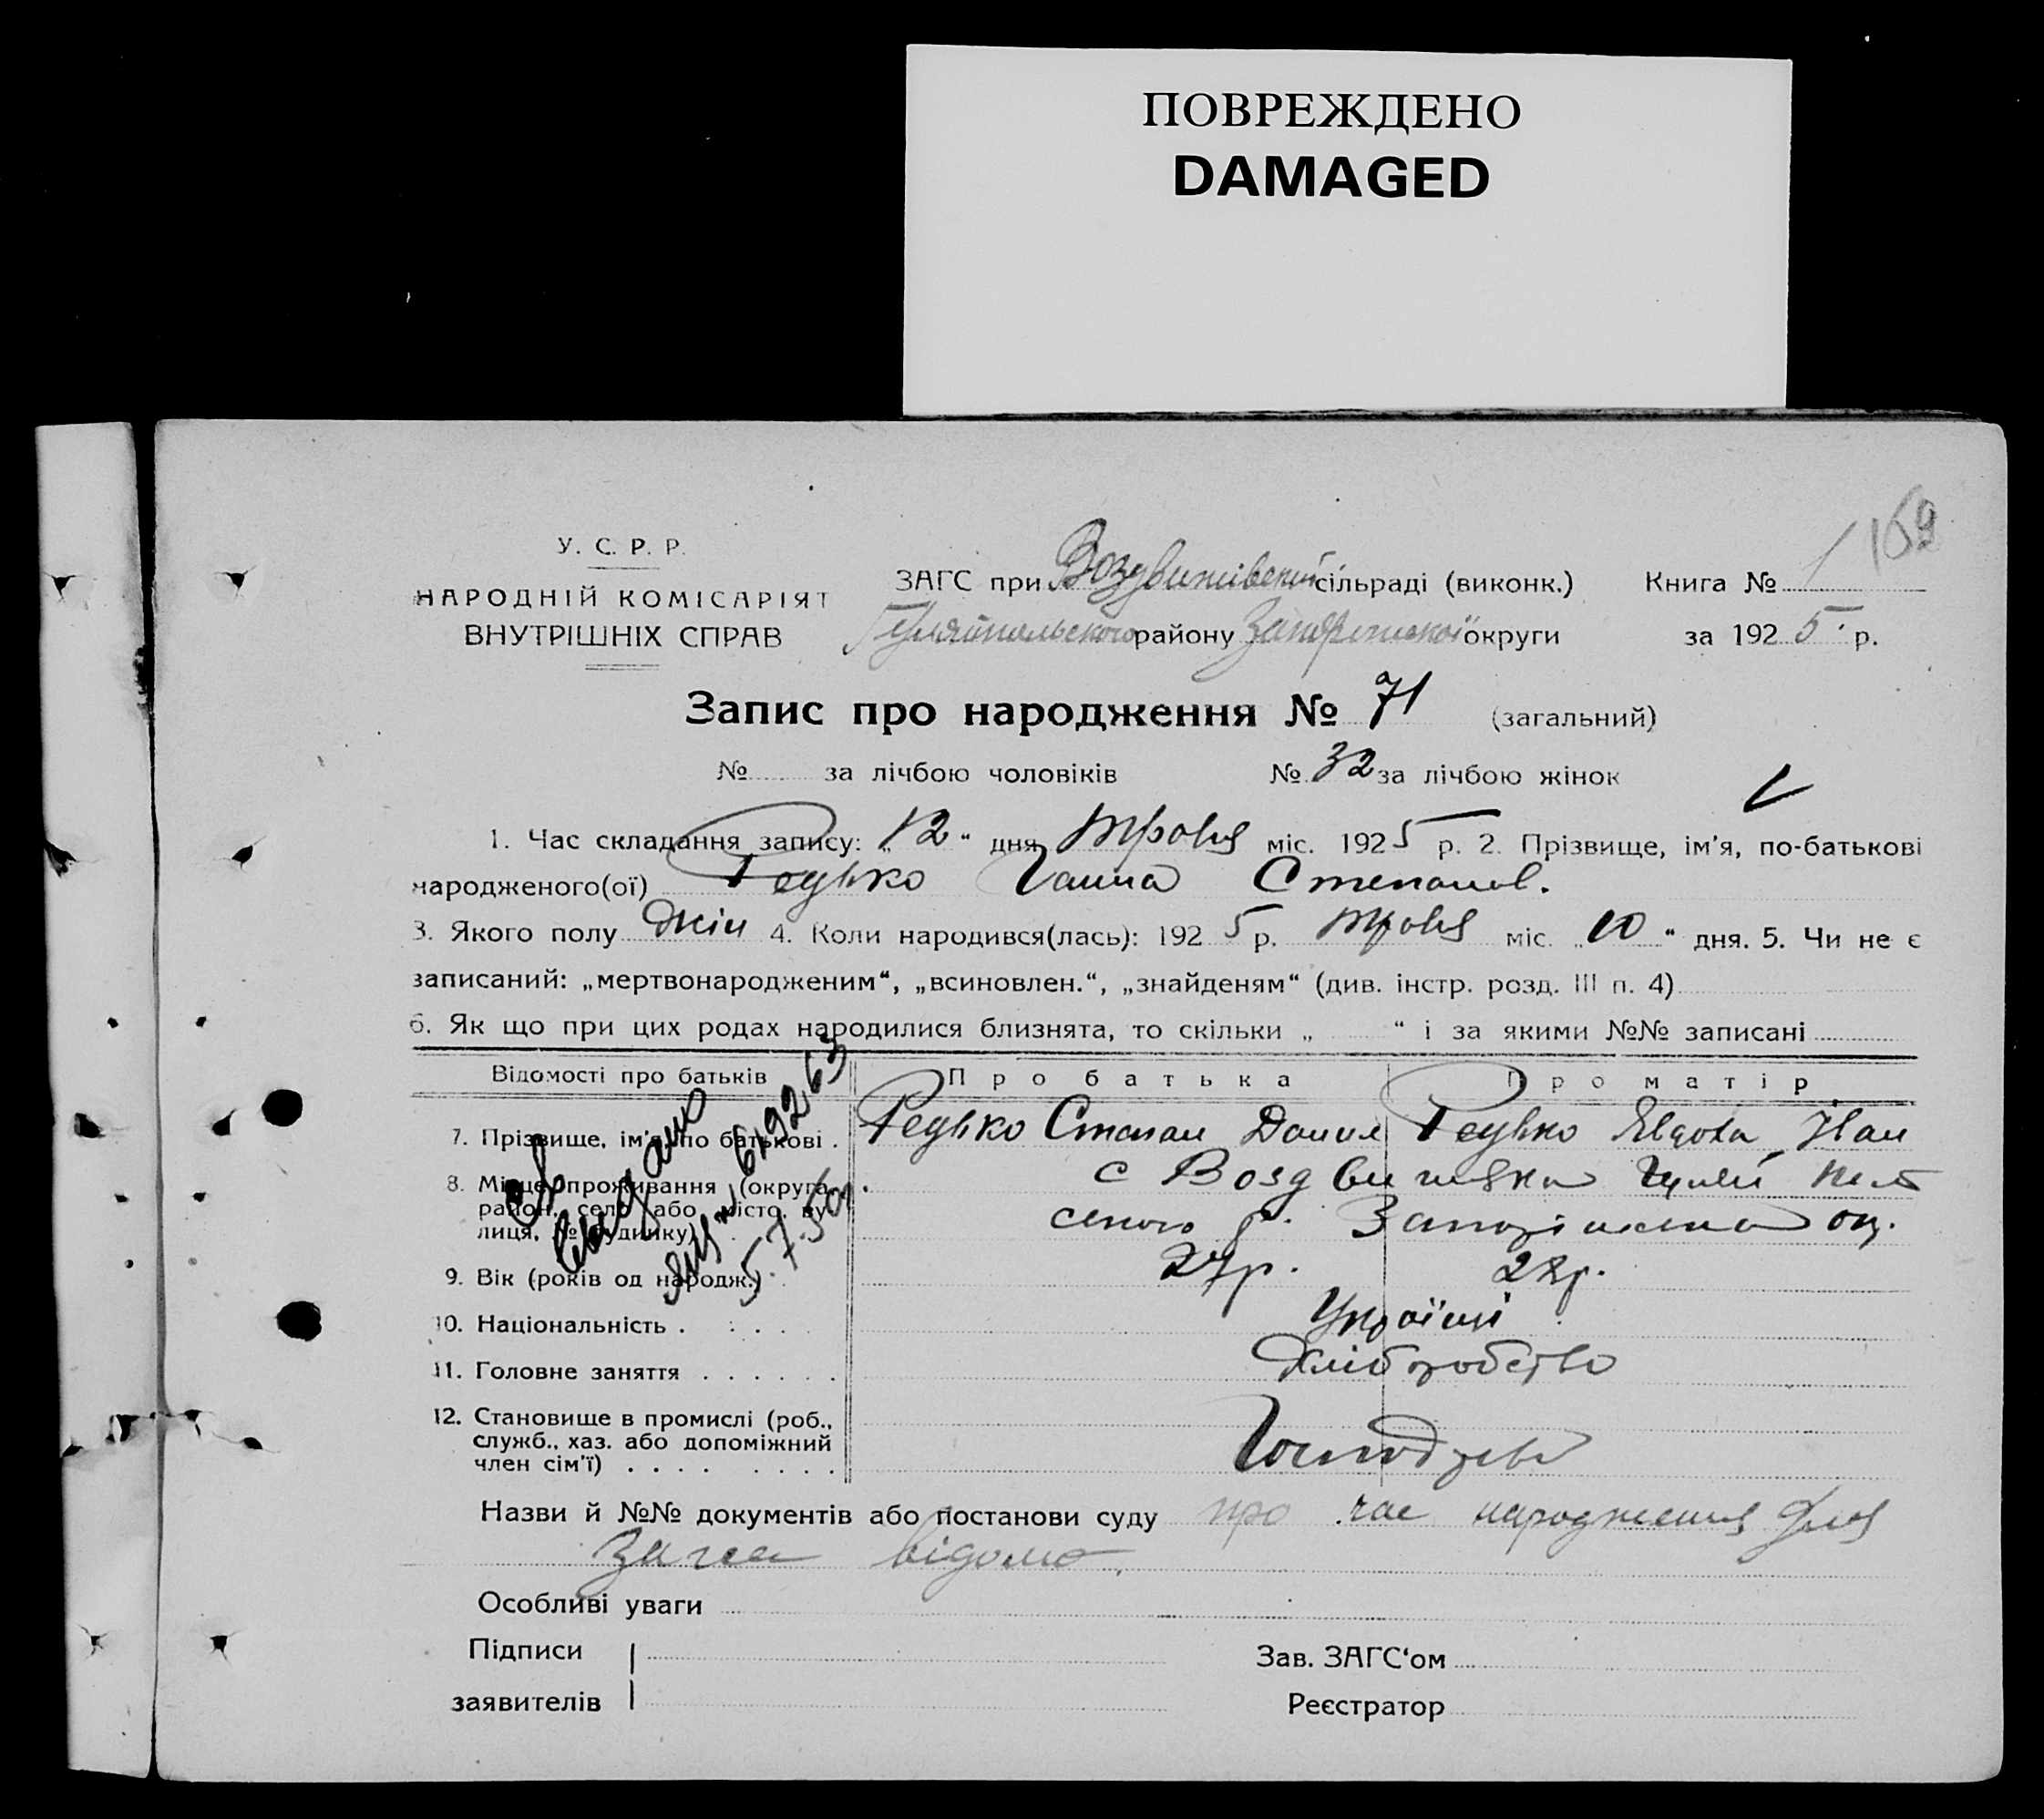 ПОВРЕЖДЕНО
DAMAGED
169
У. С. Р. Р.
НАРОДНІЙ КОМІСАРІЯТ
ВНУТРІШНІХ СПРАВ
ЗАГС при Воздвижівській сільраді (виконк.) Книга № 1
Гуляйпольського району Запорізької округи за 1925 р.
Запис про народження № 71 (загальний)
№ за лічбою чоловіків № 32 за лічбою жінок
1. Час складання запису: „12“ дня Травня міс. 1925 р. 2. Прізвище, ім'я, по-батькові
народженого(ої) Редько Ганна Степанов.
3. Якого полу жін 4. Коли народився(лась): 1925 р. травня міс. „10“ дня. 5. Чи не є
записаний: „мертвонародженим“, „всиновлен.“, „знайденям“ (див. інстр. розд. III п. 4)
6. Як що при цих родах народилися близнята, то скільки „ “ і за якими №№ записані
Відомості про батьків Про батька Про матір
7. Прізвище, ім'я, по батькові . Редько Степан Данил Редько Явдоха Іван
8. Місце проживання (округа, с Воздвижівка Гуляй пол
район, село або місто, ву-
лиця, № будинку) ського р. Запорізька ок.
9. Вік (років од народж.) 27р. 28р.
10. Національність . Українці
11. Головне заняття . . . . . . Хліборобство
12. Становище в промислі (роб.,
служб., хаз. або допоміжний
член сім'ї) . . . . . . . .
Св
выдано
619263
5.7.50
Назви й №№ документів або постанови суду про час народження для
Загса відомо.
Особливі уваги
Підписи
заявителів
Зав. ЗАГС‘ом
Реєстратор